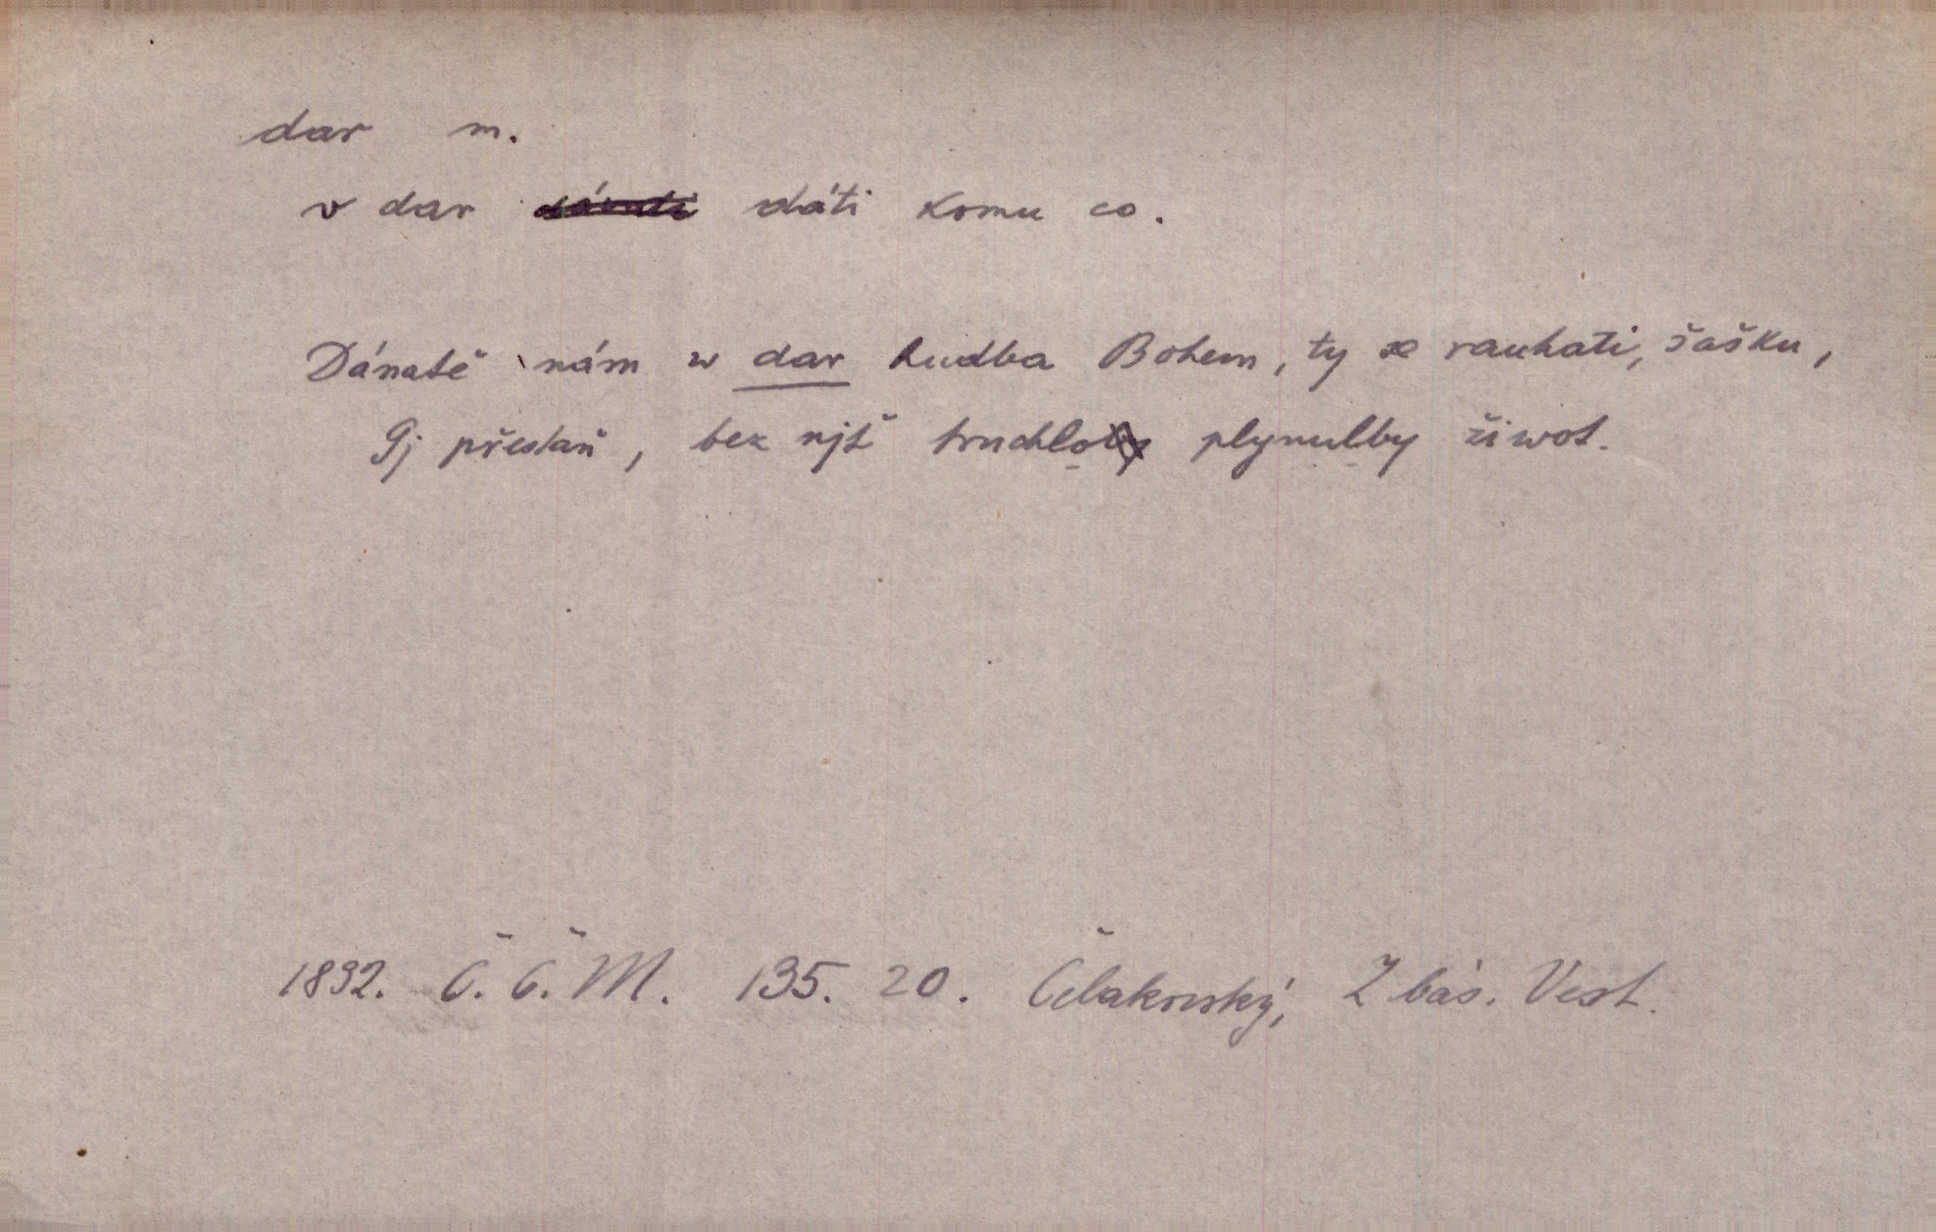 dar m.
v dar dáti komu co.
Dánatě nám w dar hudba Bohem, ty se rauhati, šašku,
Gj přestaň, bez njž truchlo plynulby žiwot.
1832. Č. Č. M. 135. 20. Čelakovský, Z bás. Vest.